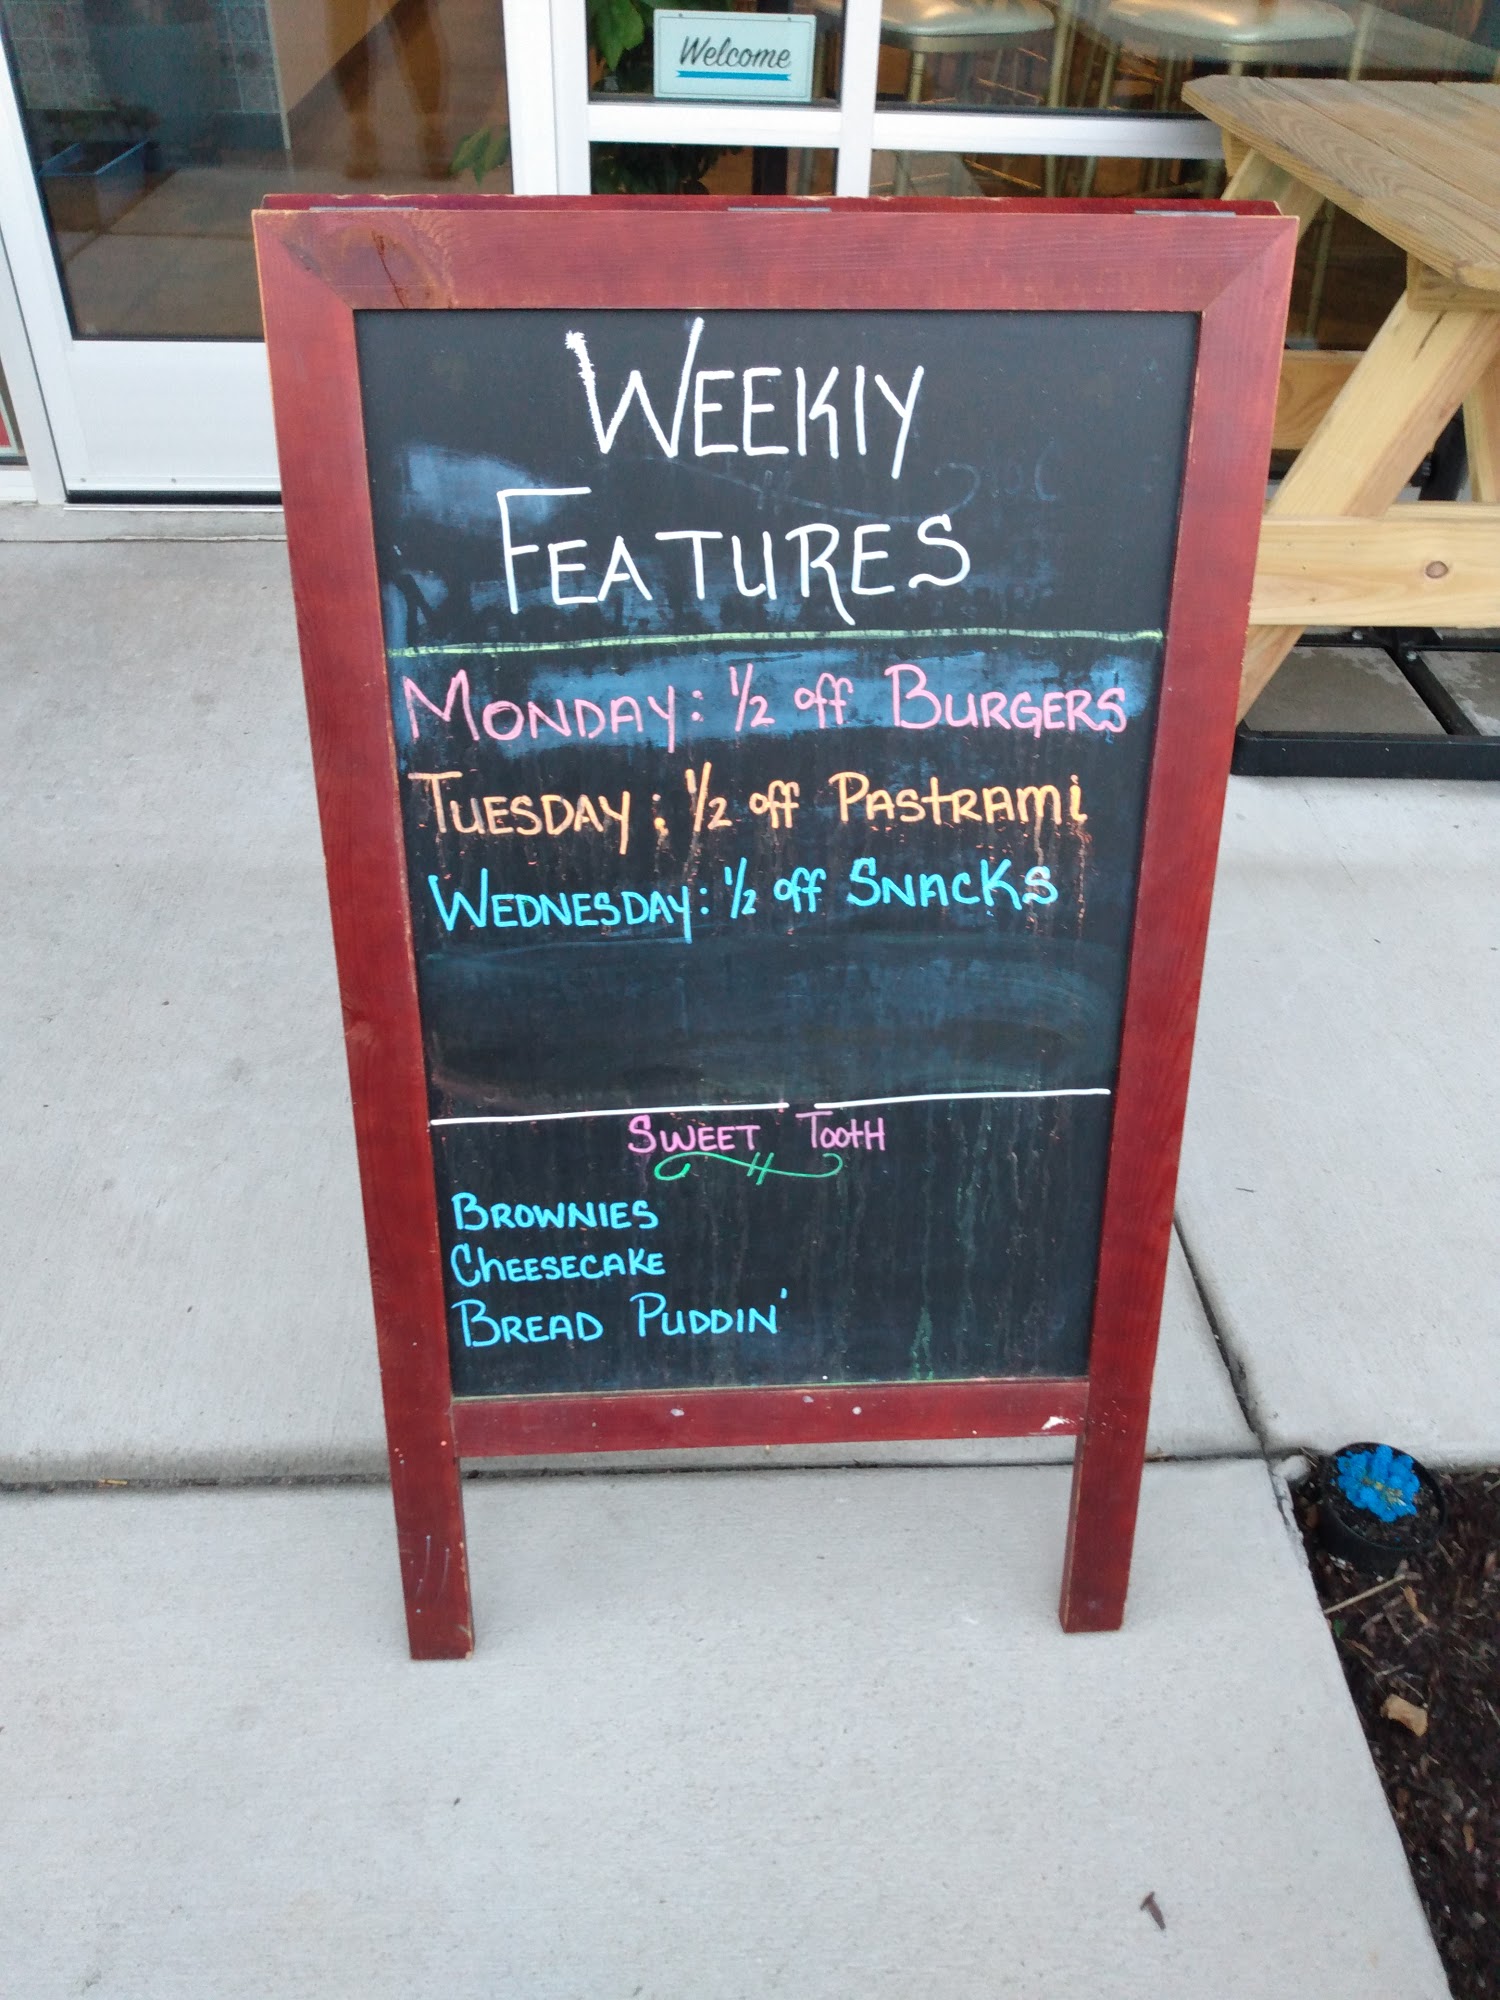 Welcome
WEEKlY
FEATURES
MONDAY: 1/2 off BURGERS
TUESDAY: 1/2 off PASTRAMi
WEDNESDAY: 1/2 off SNACKS
SWEET TOOTH
BROWNIES
CHEESECAKE
BREAD PUDDIN'